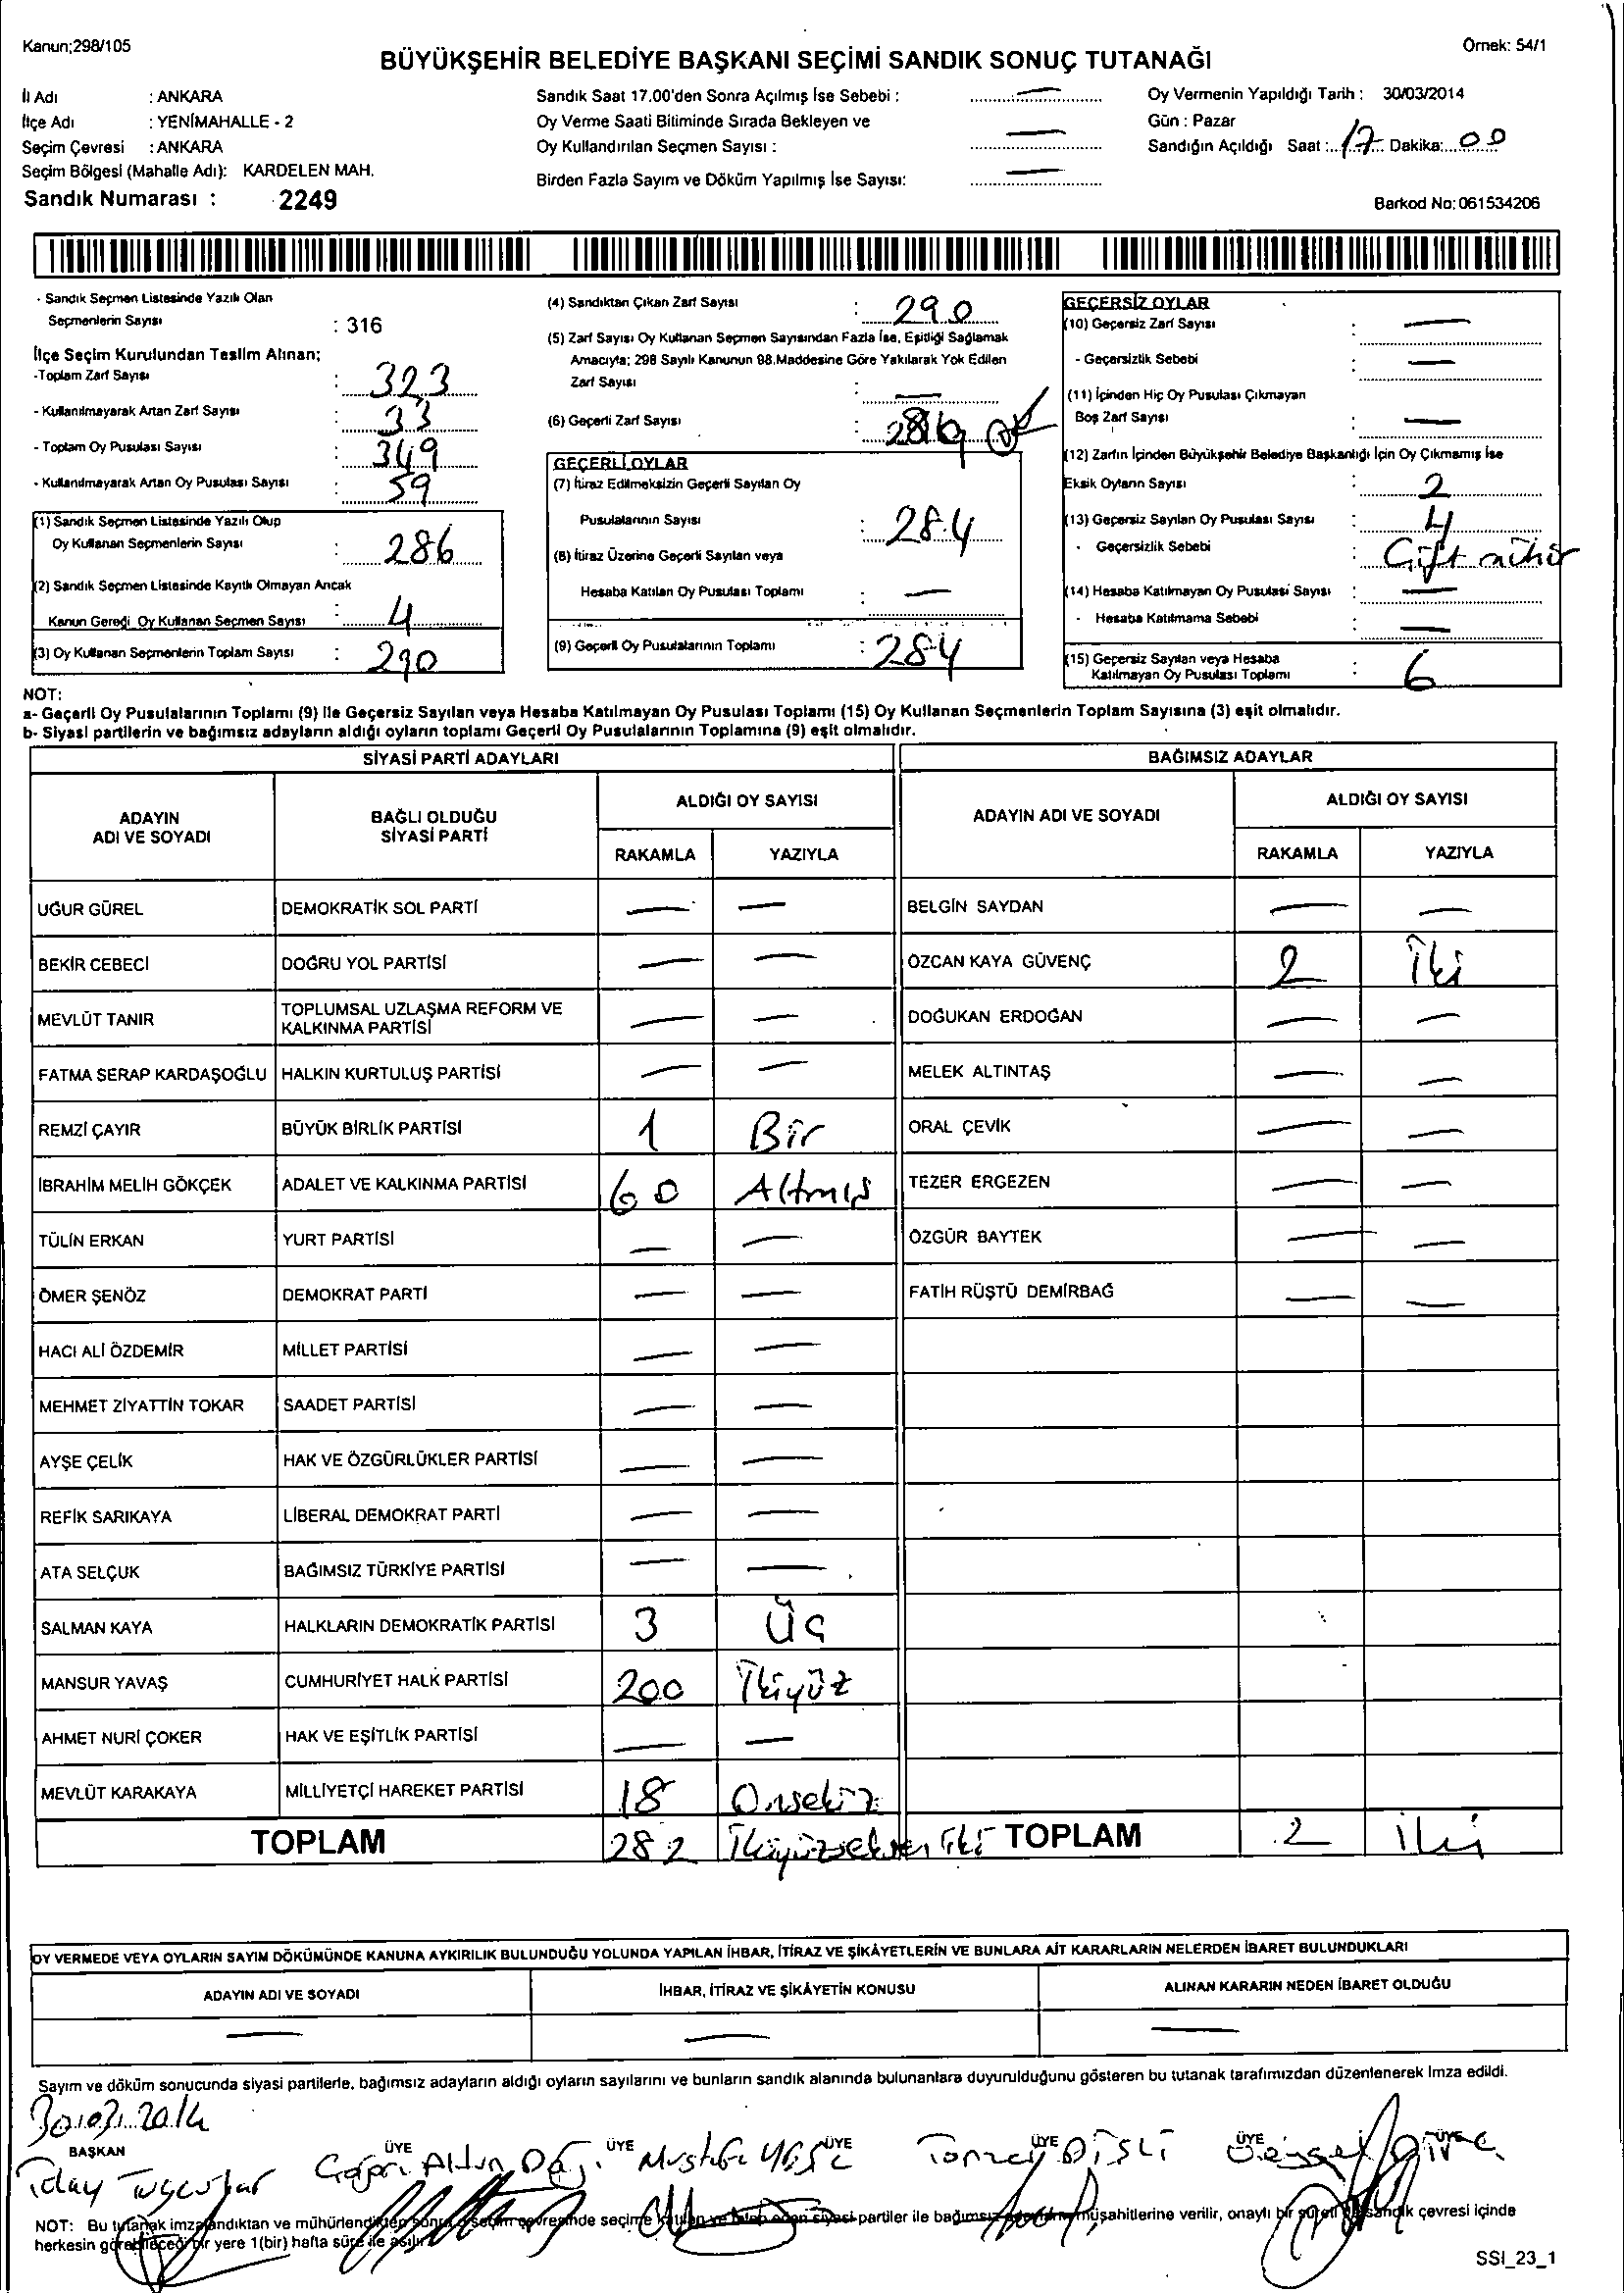 Kanun;298/105
Örnek: 54/1
BÜYÜKŞEHİR BELEDİYE BAŞKANI SEÇİMİ SANDIK SONUÇ TUTANAĞI
İl Adı : ANKARA
İlçe Adı : YENİMAHALLE - 2
Seçim Çevresi : ANKARA
Seçim Bölgesi (Mahalle Adı): KARDELEN MAH.
Sandık Numarası : 2249
Sandık Saat 17.00'den Sonra Açılmış İse Sebebi : —
Oy Verme Saati Bitiminde Sırada Bekleyen ve
Oy Kullandırılan Seçmen Sayısı : —
Birden Fazla Sayım ve Döküm Yapılmış İse Sayısı: —
Oy Vermenin Yapıldığı Tarih : 30/03/2014
Gün : Pazar
Sandığın Açıldığı Saat : 17 Dakika: 00
Barkod No: 061534206
- Sandık Seçmen Listesinde Yazılı Olan
Seçmenlerin Sayısı : 316
İlçe Seçim Kurulundan Teslim Alınan;
-Toplam Zarf Sayısı : 323
- Kullanılmayarak Artan Zarf Sayısı : 33
- Toplam Oy Pusulası Sayısı : 349
- Kullanılmayarak Artan Oy Pusulası Sayısı : 59
(1) Sandık Seçmen Listesinde Yazılı Olup
Oy Kullanan Seçmenlerin Sayısı : 286
(2) Sandık Seçmen Listesinde Kayıtlı Olmayan Ancak
Kanun Gereği Oy Kullanan Seçmen Sayısı : 4
(3) Oy Kullanan Seçmenlerin Toplam Sayısı : 290
(4) Sandıktan Çıkan Zarf Sayısı : 290
(5) Zarf Sayısı Oy Kullanan Seçmen Sayısından Fazla İse, Eşitliği Sağlamak
Amacıyla; 298 Sayılı Kanunun 98.Maddesine Göre Yakılarak Yok Edilen
Zarf Sayısı : —
(6) Geçerli Zarf Sayısı :
GEÇERLİ OYLAR
(7) İtiraz Edilmeksizin Geçerli Sayılan Oy
Pusulalarının Sayısı : 284
(8) İtiraz Üzerine Geçerli Sayılan veya
Hesaba Katılan Oy Pusulası Toplamı : —
(9) Geçerli Oy Pusulalarının Toplamı : 284
GEÇERSİZ OYLAR
(10) Geçersiz Zarf Sayısı : —
- Geçersizlik Sebebi : —
(11) İçinden Hiç Oy Pusulası Çıkmayan
Boş Zarf Sayısı : —
(12) Zarfın İçinden Büyükşehir Belediye Başkanlığı İçin Oy Çıkmamış İse
Eksik Oyların Sayısı : 2
(13) Geçersiz Sayılan Oy Pusulası Sayısı : 4
- Geçersizlik Sebebi : Çift mühür
(14) Hesaba Katılmayan Oy Pusulası Sayısı : —
- Hesaba Katılmama Sebebi : —
(15) Geçersiz Sayılan veya Hesaba
Katılmayan Oy Pusulası Toplamı : 6
NOT:
a- Geçerli Oy Pusulalarının Toplamı (9) ile Geçersiz Sayılan veya Hesaba Katılmayan Oy Pusulası Toplamı (15) Oy Kullanan Seçmenlerin Toplam Sayısına (3) eşit olmalıdır.
b- Siyasi partilerin ve bağımsız adayların aldığı oyların toplamı Geçerli Oy Pusulalarının Toplamına (9) eşit olmalıdır.
SİYASİ PARTİ ADAYLARI
BAĞIMSIZ ADAYLAR
ADAYIN
ADI VE SOYADI
BAĞLI OLDUĞU
SİYASİ PARTİ
ALDIĞI OY SAYISI
RAKAMLA YAZIYLA
ADAYIN ADI VE SOYADI
ALDIĞI OY SAYISI
RAKAMLA YAZIYLA
UĞUR GÜREL DEMOKRATİK SOL PARTİ — — BELGİN SAYDAN — —
BEKİR CEBECİ DOĞRU YOL PARTİSİ — — ÖZCAN KAYA GÜVENÇ 2 İki
MEVLÜT TANIR TOPLUMSAL UZLAŞMA REFORM VE
KALKINMA PARTİSİ — — DOĞUKAN ERDOĞAN — —
FATMA SERAP KARDAŞOĞLU HALKIN KURTULUŞ PARTİSİ — — MELEK ALTINTAŞ — —
REMZİ ÇAYIR BÜYÜK BİRLİK PARTİSİ 1 Bir ORAL ÇEVİK — —
İBRAHİM MELİH GÖKÇEK ADALET VE KALKINMA PARTİSİ 60 Altmış TEZER ERGEZEN — —
TÜLİN ERKAN YURT PARTİSİ — — ÖZGÜR BAYTEK — —
ÖMER ŞENÖZ DEMOKRAT PARTİ — — FATİH RÜŞTÜ DEMİRBAĞ — —
HACI ALİ ÖZDEMİR MİLLET PARTİSİ — —
MEHMET ZİYATTİN TOKAR SAADET PARTİSİ — —
AYŞE ÇELİK HAK VE ÖZGÜRLÜKLER PARTİSİ — —
REFİK SARIKAYA LİBERAL DEMOKRAT PARTİ — —
ATA SELÇUK BAĞIMSIZ TÜRKİYE PARTİSİ — —
SALMAN KAYA HALKLARIN DEMOKRATİK PARTİSİ 3 üç
MANSUR YAVAŞ CUMHURİYET HALK PARTİSİ 200 İkiyüz
AHMET NURİ ÇOKER HAK VE EŞİTLİK PARTİSİ — —
MEVLÜT KARAKAYA MİLLİYETÇİ HAREKET PARTİSİ 18 Onsekiz
TOPLAM 282 İkiyüzseksen iki TOPLAM 2 iki
OY VERMEDE VEYA OYLARIN SAYIM DÖKÜMÜNDE KANUNA AYKIRILIK BULUNDUĞU YOLUNDA YAPILAN İHBAR, İTİRAZ VE ŞİKÂYETLERİN VE BUNLARA AİT KARARLARIN NELERDEN İBARET BULUNDUKLARI
ADAYIN ADI VE SOYADI İHBAR, İTİRAZ VE ŞİKÂYETİN KONUSU ALINAN KARARIN NEDEN İBARET OLDUĞU
— — —
Sayım ve döküm sonucunda siyasi partilerle, bağımsız adayların aldığı oyların sayılarını ve bunların sandık alanında bulunanlara duyurulduğunu gösteren bu tutanak tarafımızdan düzenlenerek imza edildi.
30.03.2014
BAŞKAN ÜYE ÜYE ÜYE ÜYE ÜYE ÜYE
Mustafa
NOT: Bu tutanak imzalandıktan ve mühürlendikten sonra seçim çevresinde seçime katılan ve talep eden siyasi partiler ile bağımsız adayların müşahitlerine verilir, onaylı bir sureti de sandık çevresi içinde
herkesin görebileceği bir yere 1(bir) hafta süre ile asılır.
SSI_23_1